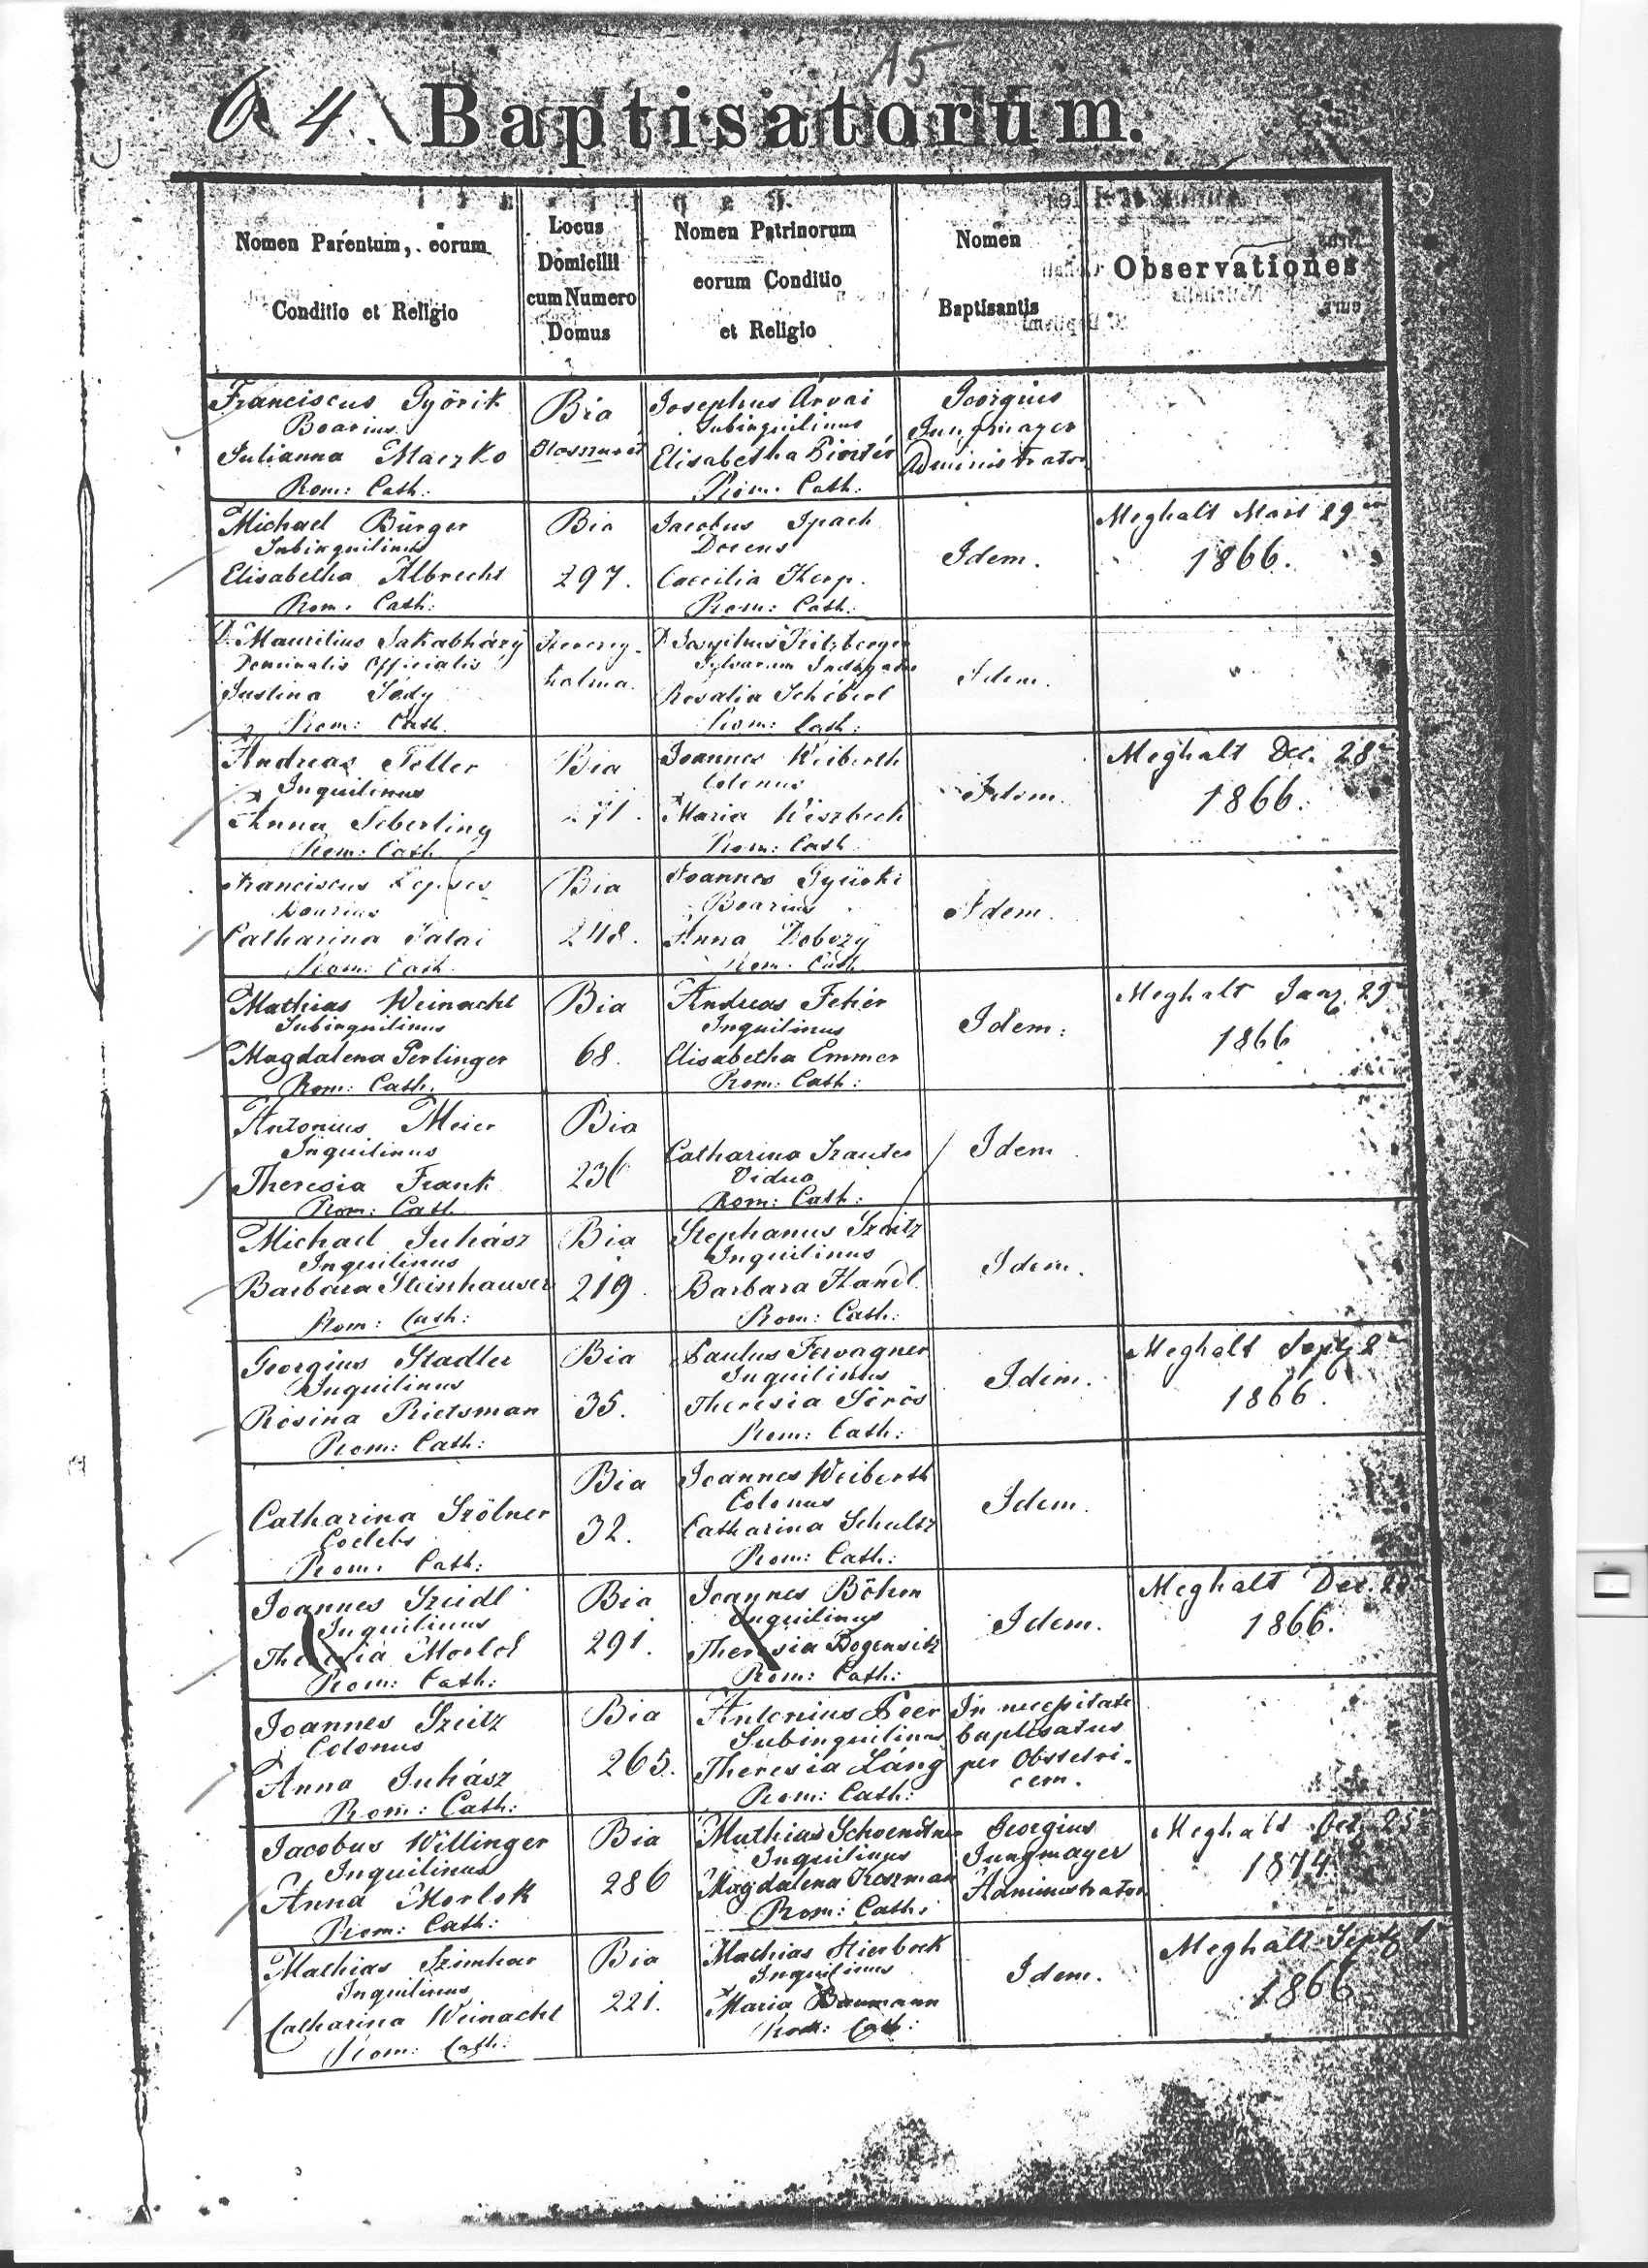 15
64.
Baptisatorum.
Nomen Parentum, eorum
Conditio et Religio
Locus
Domicilii
cum Numero
Domus
Nomen Patrinorum
eorum Conditio
et Religio
Nomen
Baptisantis
Observationes
Franciscus Györik
Boarius
Julianna Maczko
Rom: Cath:
Bia
Josephus Árvai
Subinquilinus
Elisabetha Pintér
Rom: Cath:
Georgius
Jungmayer
Administrator
Michael Bürger
Subinquilinus
Elisabetha Albrecht
Rom: Cath:
Bia
297.
Jacobus Ipach
Docens
Caecilia Kerp.
Rom: Cath:
Idem.
Meghalt Mart 29
1866.
D. Mauritius Jakabházÿ
Dominalis Officialis
Justina Sódy
Rom: Cath.
halma.
D. Josephus
Rosalia Schéberl
Rom: Cath:
Idem.
Andreas Feller
Inquilinus
Anna Seberling
Rom: Cath.
Bia
271.
Joannes Weiberth
Colonus
Maria Weiszbeck
Rom: Cath
Idem.
Meghalt Dec. 28
1866.
Franciscus
Boarius
Catharina Talai
Rom: Cath.
Bia
248.
Joannes Gyüski
Boarius
Anna Dobozÿ
Rom. Cath
Idem.
Mathias Weinacht
Subinquilinus
Magdalena Perlinger
Rom: Cath.
Bia
68.
Andreas Fehér
Inquilinus
Elisabetha Emmer
Rom: Cath:
Idem:
Meghalt Janr. 29
1866
Antonius Meier
Inquilinus
Theresia Frank
Rom: Cath
Bia
236
Catharina Trauter
Vidua
Rom: Cath:
Idem
Michael Juhász
Inquilinus
Barbara Steinhauser
Rom: Cath:
Bia
219.
Stephanus Szeitz
Inquilinus
Barbara Handl
Rom: Cath:
Idem.
Georgius Stadler
Inquilinus
Rosina Rietsman
Rom: Cath:
Bia
35.
Paulus Fervagner
Inquilinus
Theresia Sörös
Rom: Cath:
Idem.
Meghalt Sept 2
1866.
Catharina Szölner
Coelebs
Rom: Cath:
Bia
32.
Joannes Weiberth
Colonus
Catharina Schultz
Rom: Cath:
Idem.
Joannes Szeidl
Inquilinus
Theresia Morlok
Rom: Cath:
Bia
291.
Joannes Böhm
Inquilinus
Theresia Bogensitz
Rom: Cath:
Idem.
Meghalt Dec. 20
1866.
Joannes Szeitz
Colonus
Anna Juhász
Rom: Cath:
Bia
265.
Antonius Peer
Subinquilinus
Theresia Láng
Rom: Cath:
In necessitate
baptisatus
per Obstetri-
cem.
Jacobus Willinger
Inquilinus
Anna Morlok
Rom: Cath:
Bia
286
Mathias Schoendtner
Inquilinus
Magdalena Kroszman
Rom: Cath:
Georgius
Jungmayer
Administrator
Meghalt Oct. 25
1874.
Mathias Szimhar
Inquilinus
Catharina Weinacht
Rom: Cath:
Bia
221.
Mathias Hierbock
Inquilinus
Maria Baumann
Rom: Cath:
Idem.
Meghalt Sept 1
1866